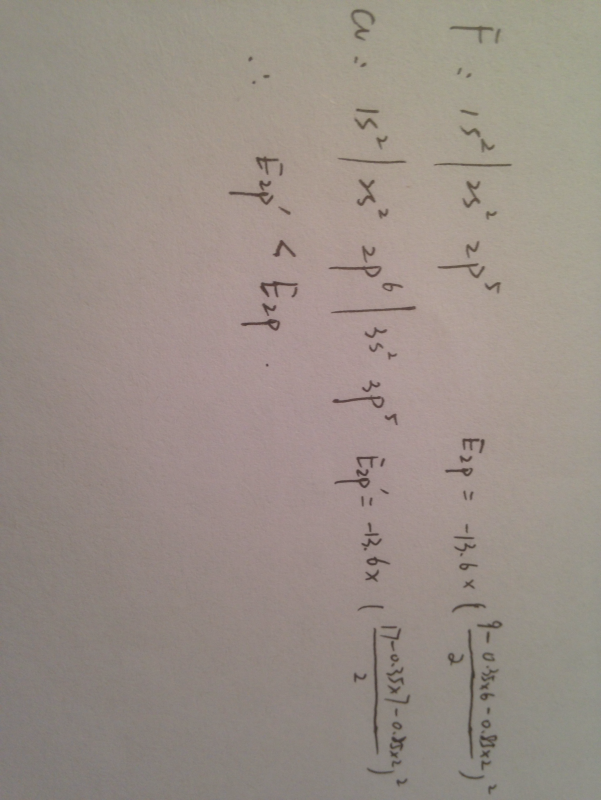 F: 1s² | 2s² 2p⁵ E₂ₚ = -13.6 × (9-0.35×6-0.85×2 / 2)²
Cl: 1s² | 2s² 2p⁶ | 3s² 3p⁵ E₂ₚ' = -13.6 × (17-0.35×7-0.85×2 / 2)²
∴ E₂ₚ' < E₂ₚ.